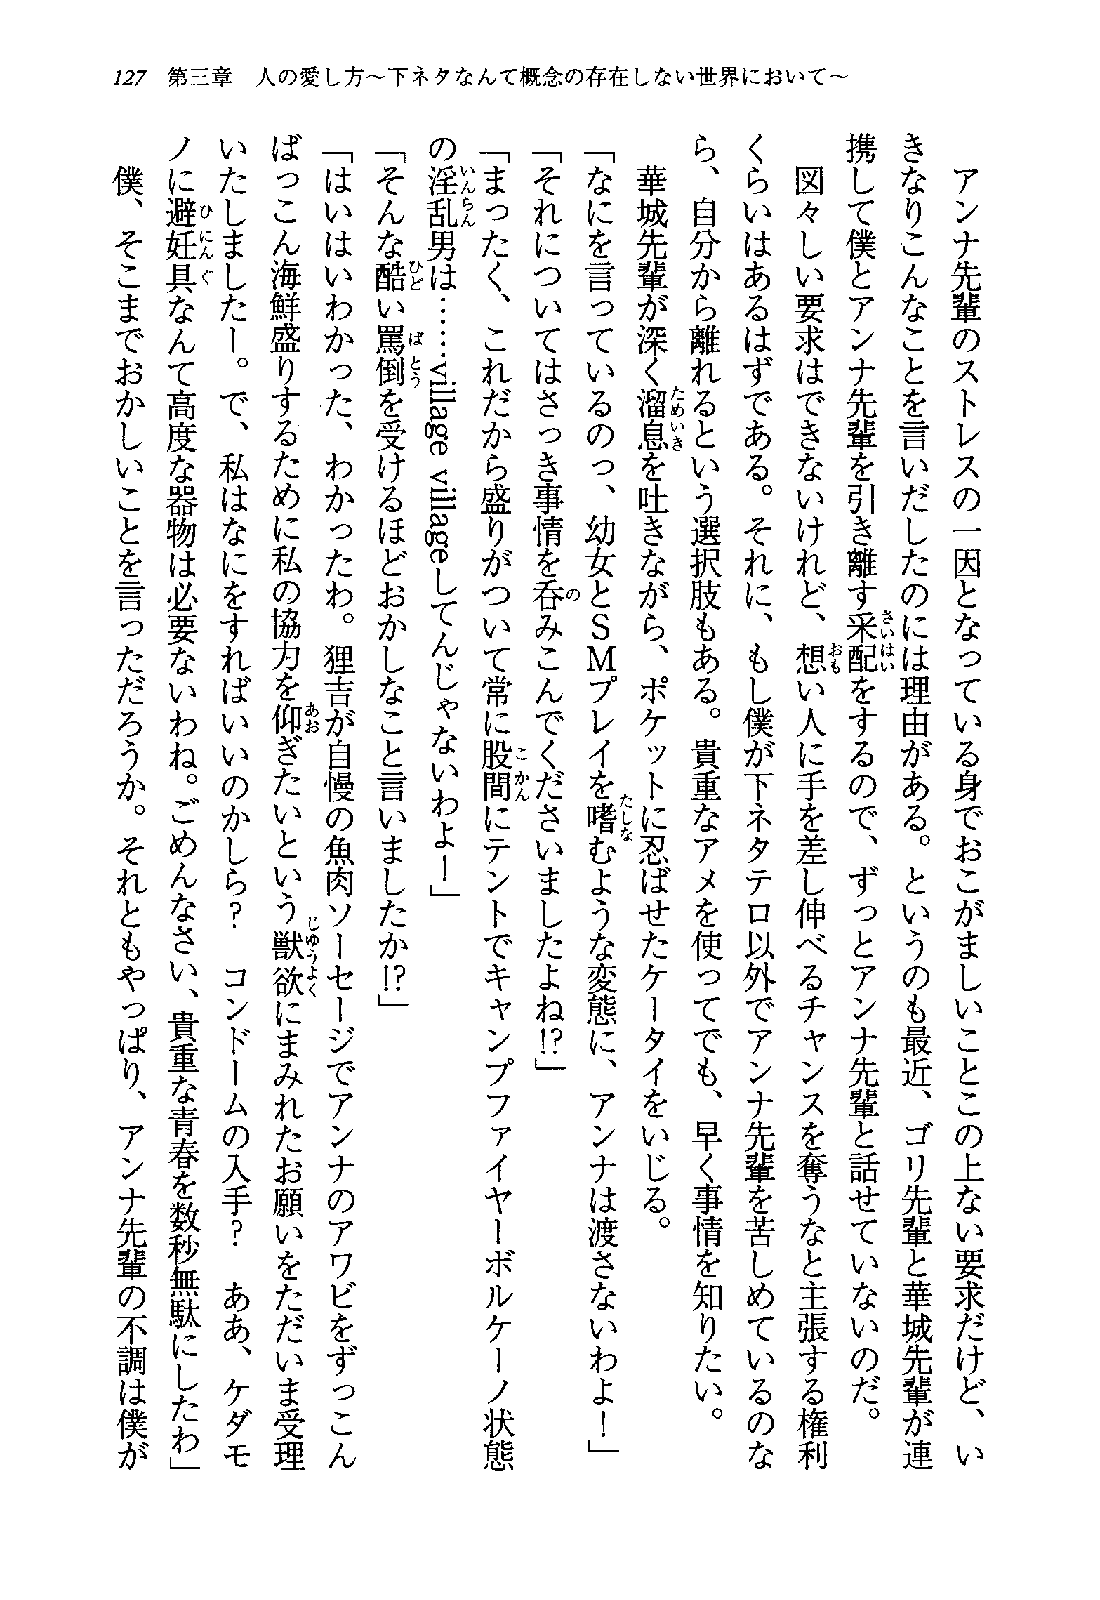 127 第三章 人の愛し方～下ネタなんて概念の存在しない世界において～
アンナ先輩のストレスの一因となっている身でおこがましいことこの上ない要求だけど、い
きなりこんなことを言いだしたのには理由がある。というのも最近、ゴリ先輩と華城先輩が連
携して僕とアンナ先輩を引き離す采配をするので、ずっとアンナ先輩と話せていないのだ。
図々しい要求はできないけれど、想い人に手を差し伸べるチャンスを奪うなと主張する権利
くらいはあるはずである。それに、もし僕が下ネタテロ以外でアンナ先輩を苦しめているのな
ら、自分から離れるという選択肢もある。貴重なアメを使ってでも、早く事情を知りたい。
華城先輩が深く溜息を吐きながら、ポケットに忍ばせたケータイをいじる。
「なにを言っているのっ、幼女とＳＭプレイを嗜むような変態に、アンナは渡さないわよ！」
「それについてはさっき事情を呑みこんでくださいましたよね!?」
「まったく、これだから盛りがついて常に股間にテントでキャンプファイヤーボルケーノ状態
の淫乱男は……village villageしてんじゃないわよー」
「そんな酷い罵倒を受けるほどおかしなこと言いましたか!?」
「はいはいわかった、わかったわ。狸吉が自慢の魚肉ソーセージでアンナのアワビをずっこん
ばっこん海鮮盛りするために私の協力を仰ぎたいという獣欲にまみれたお願いをただいま受理
いたしましたー。で、私はなにをすればいいのかしら？ コンドームの入手？ ああ、ケダモ
ノに避妊具なんて高度な器物は必要ないわね。ごめんなさい、貴重な青春を数秒無駄にしたわ」
僕、そこまでおかしいことを言っただろうか。それともやっぱり、アンナ先輩の不調は僕が